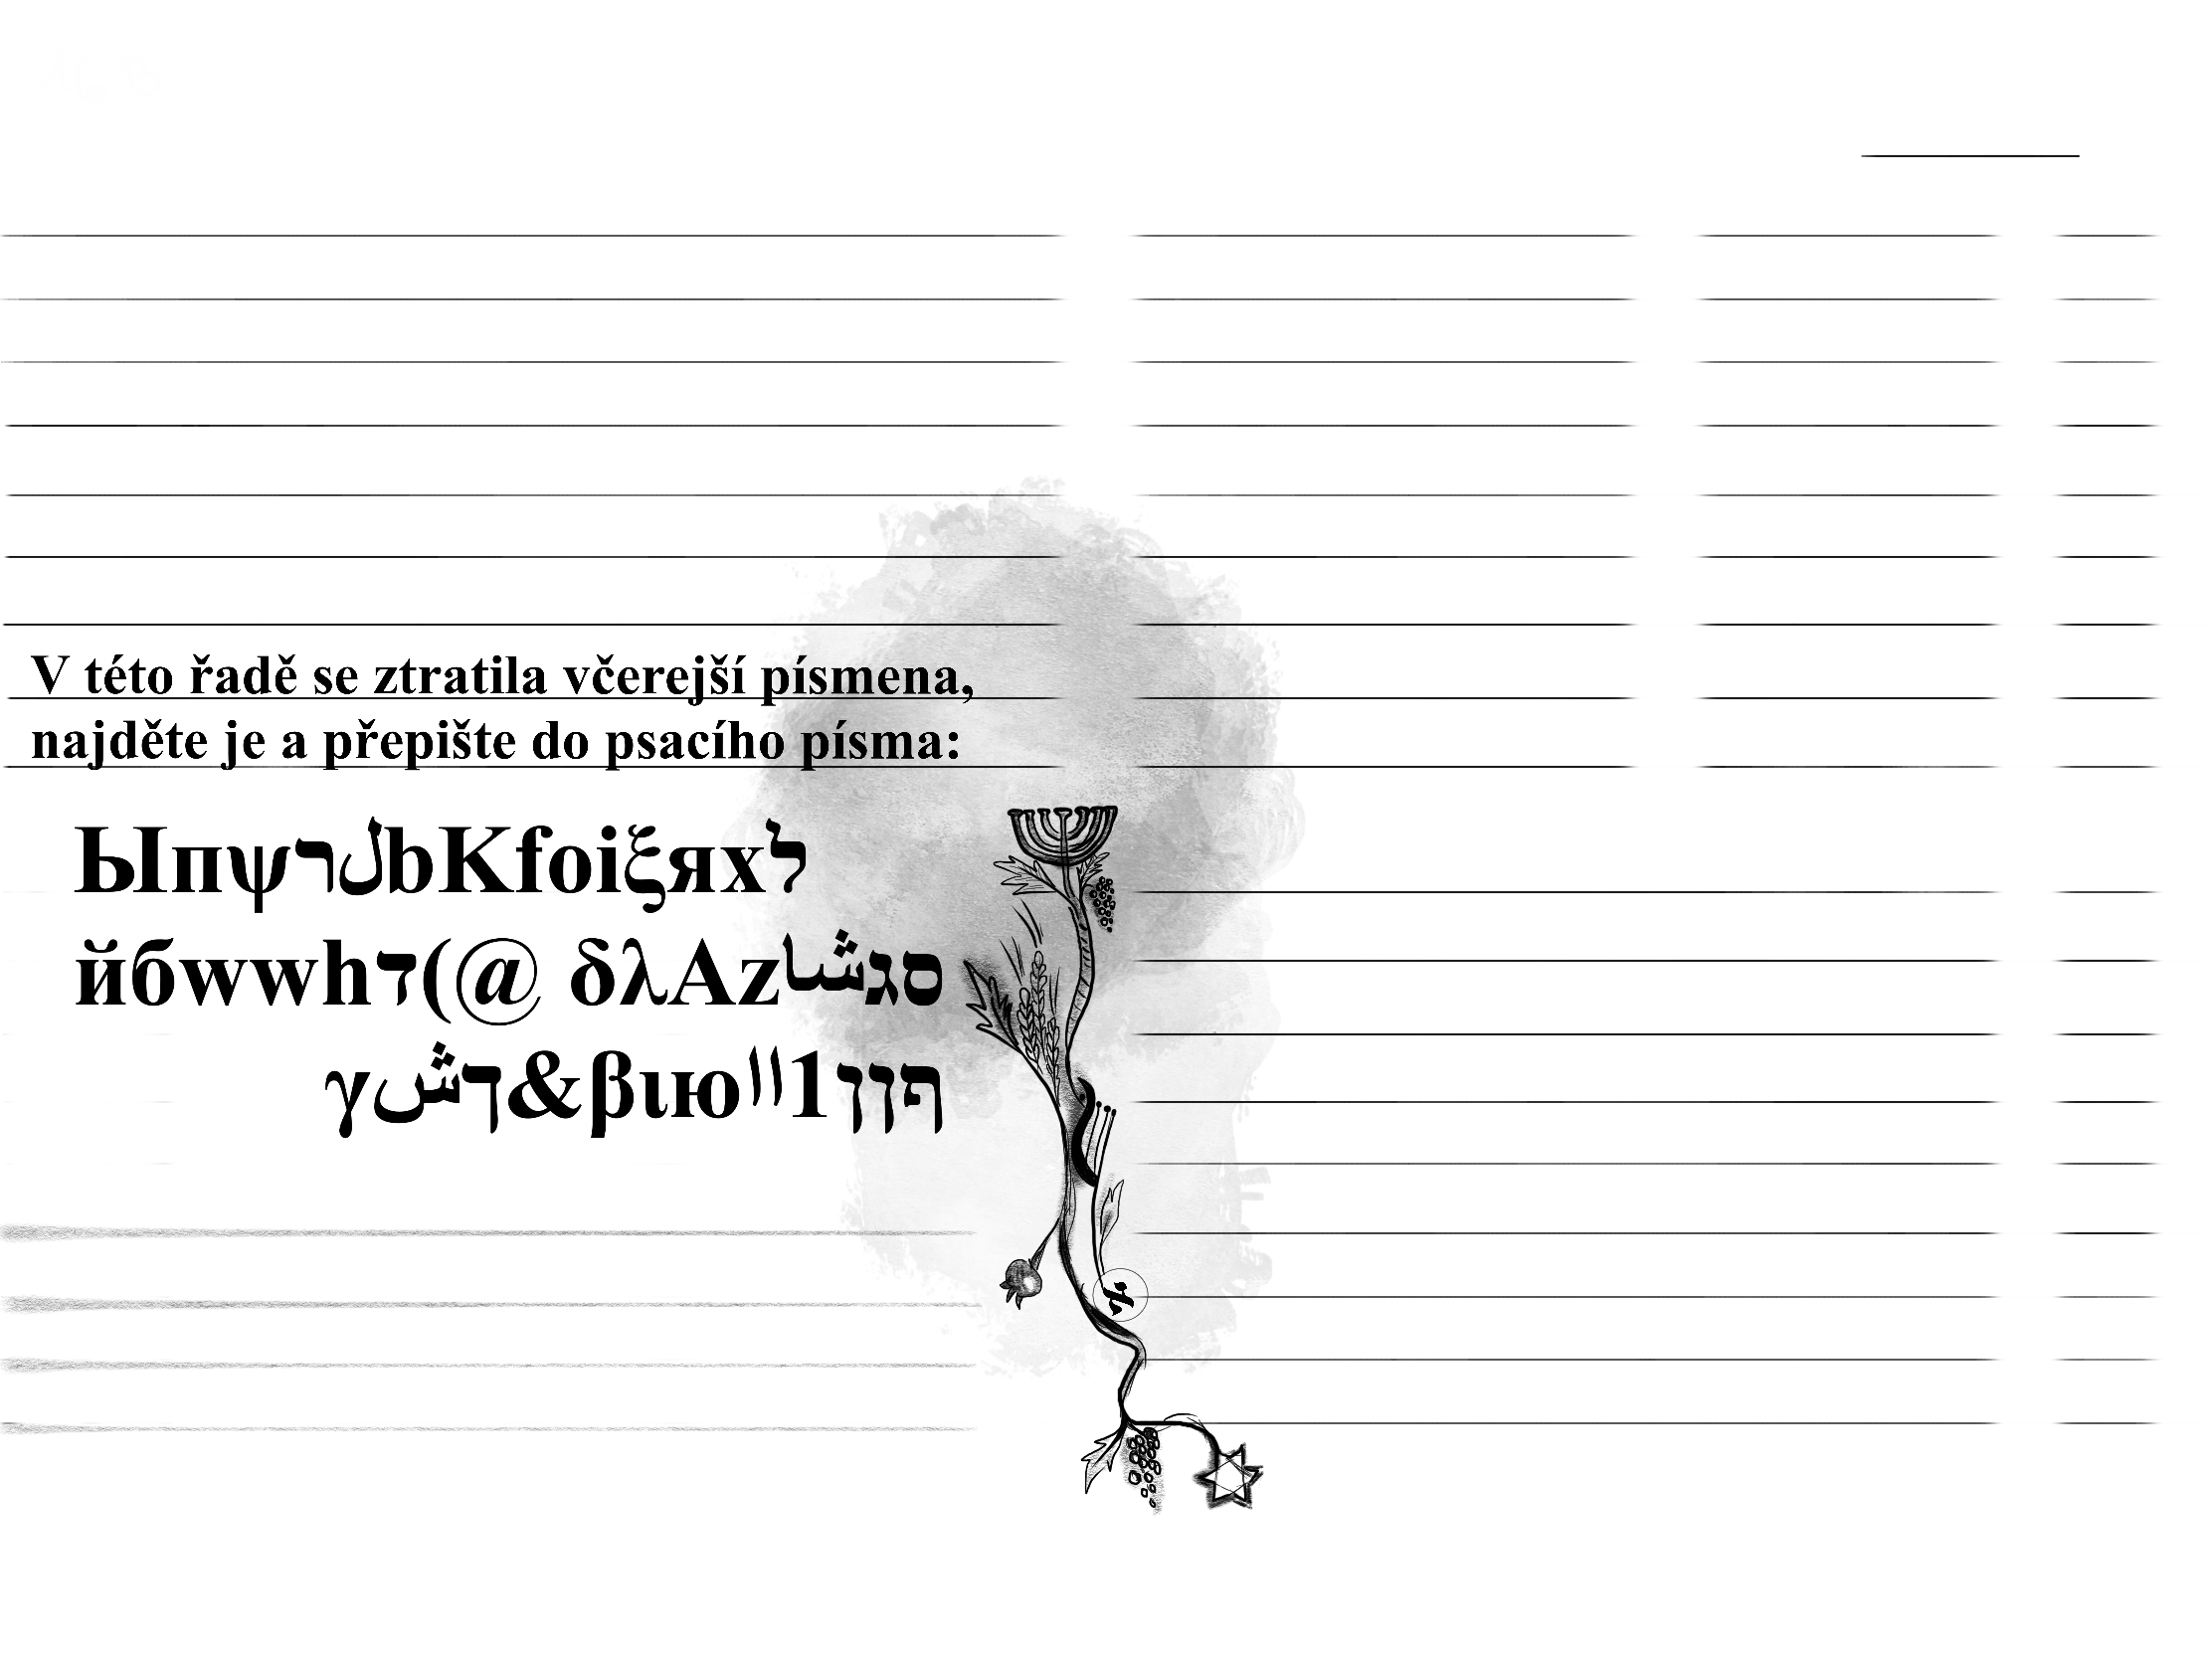 V této řadě se ztratila včerejší písmena,
najděte je a přepište do psacího písma:
ЫпψרلbKfoiξяхל
йбwwhד(@ δλAzشاגס
γشךּ&βιюاا1ןןף